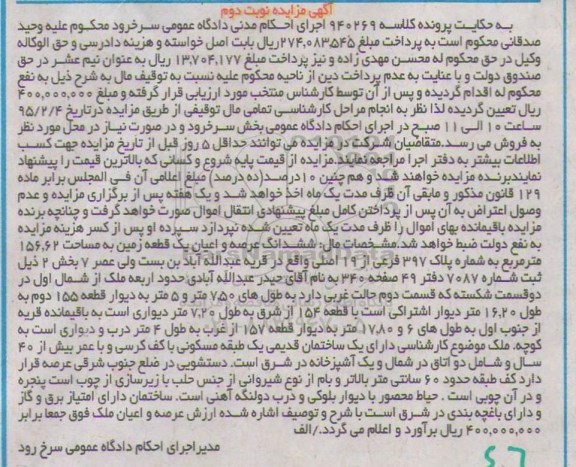 آگهی مزایده نوبت دوم
به حکایت پرونده کلاسه ۹۴۰۲۶۹ اجرای احکام مدنی دادگاه عمومی سرخرود محکوم علیه وحید
صدقانی محکوم است به پرداخت مبلغ ۲۷۴,۰۸۳,۵۴۵ ریال بابت اصل خواسته و هزینه دادرسی و حق الوکاله
وکیل در حق محکوم له محسن مهدی زاده و نیز پرداخت مبلغ ۱۳,۷۰۴,۱۷۷ ریال به عنوان نیم عشر در حق
صندوق دولت و با عنایت به عدم پرداخت دین از ناحیه محکوم علیه نسبت به توقیف مال به شرح ذیل به نفع
محکوم له اقدام گردیده و پس از آن توسط کارشناس منتخب مورد ارزیابی قرار گرفته و مبلغ ۴۰۰,۰۰۰,۰۰۰
ریال تعیین گردیده لذا نظر به انجام مراحل کارشناسی تمامی مال توقیفی از طریق مزایده در تاریخ ۹۵/۲/۴
ساعت ۱۰ الی ۱۱ صبح در اجرای احکام دادگاه عمومی بخش سرخرود و در صورت نیاز در محل مورد نظر
به فروش می رسد.متقاضیان شرکت در مزایده می توانند حداقل ۵ روز قبل از تاریخ مزایده جهت کسب
اطلاعات بیشتر به دفتر اجرا مراجعه نمایند.مزایده از قیمت پایه شروع و کسانی که بالاترین قیمت را پیشنهاد
نمایندبرنده مزایده خواهند شد و هم چنین ۱۰درصد(ده درصد) مبلغ اعلامی آن فی المجلس برابر ماده
۱۲۹ قانون مذکور و مابقی آن ظرف مدت یک ماه اخذ خواهد شد و یک هفته پس از برگزاری مزایده و عدم
وصول اعتراض به آن پس از پرداختن کامل مبلغ پیشنهادی انتقال اموال صورت خواهد گرفت و چنانچه برنده
مزایده باقیمانده بهای اموال را ظرف مدت یک ماه تعیین شده نپردازد سپرده او پس از کسر هزینه مزایده
به نفع دولت ضبط خواهد شد.مشخصات مال: ششدانگ عرصه و اعیان یک قطعه زمین به مساحت ۱۵۶,۶۲
مترمربع به شماره پلاک ۳۹۷ فرعی از ۱۹ اصلی واقع در قریه عبدالله آباد بن بست ولی عصر ۷ بخش ۲ ذیل
ثبت شماره ۷۰۸۷ دفتر ۴۹ صفحه ۳۴۰ به نام آقای حیدر عبدالله آبادی:حدود اربعه ملک از شمال اول در
دوقسمت شکسته که قسمت دوم حالت غربی دارد به طول های ۷,۵۰ متر و ۵ متر به دیوار قطعه ۱۵۵ دوم به
طول ۱۶,۲۰ متر دیوار اشتراکی است با قطعه ۱۵۴ از شرق به طول ۷,۲۰ متر دیواری است به باقیمانده قریه
از جنوب اول به طول های ۶ و ۱۷,۸۰ متر به دیوار قطعه ۱۵۷ از غرب به طول ۴ متر درب و دیواری است به
کوچه. ملک موضوع کارشناسی دارای یک ساختمان قدیمی یک طبقه مسکونی با کف کرسی و با عمر بیش از ۴۰
سال و شامل دو اتاق در شمال و یک آشپزخانه در شرق است. دستشویی در ضلع جنوب شرقی عرصه قرار
دارد کف طبقه حدود ۶۰ سانتی متر بالاتر و بام از نوع شیروانی از جنس حلب با زیرسازی از چوب است پنجره
و در آن چوبی است . حیاط محصور با دیوار بلوکی و درب دولنگه آهنی است. ساختمان دارای امتیاز برق و گاز
و دارای باغچه بندی در شرق است با شرح و توصیف اشاره شده ارزش عرصه و اعیان ملک فوق جمعا برابر
۴۰۰,۰۰۰,۰۰۰ ریال برآورد و اعلام می گردد./الف
مدیر اجرای احکام دادگاه عمومی سرخ رود